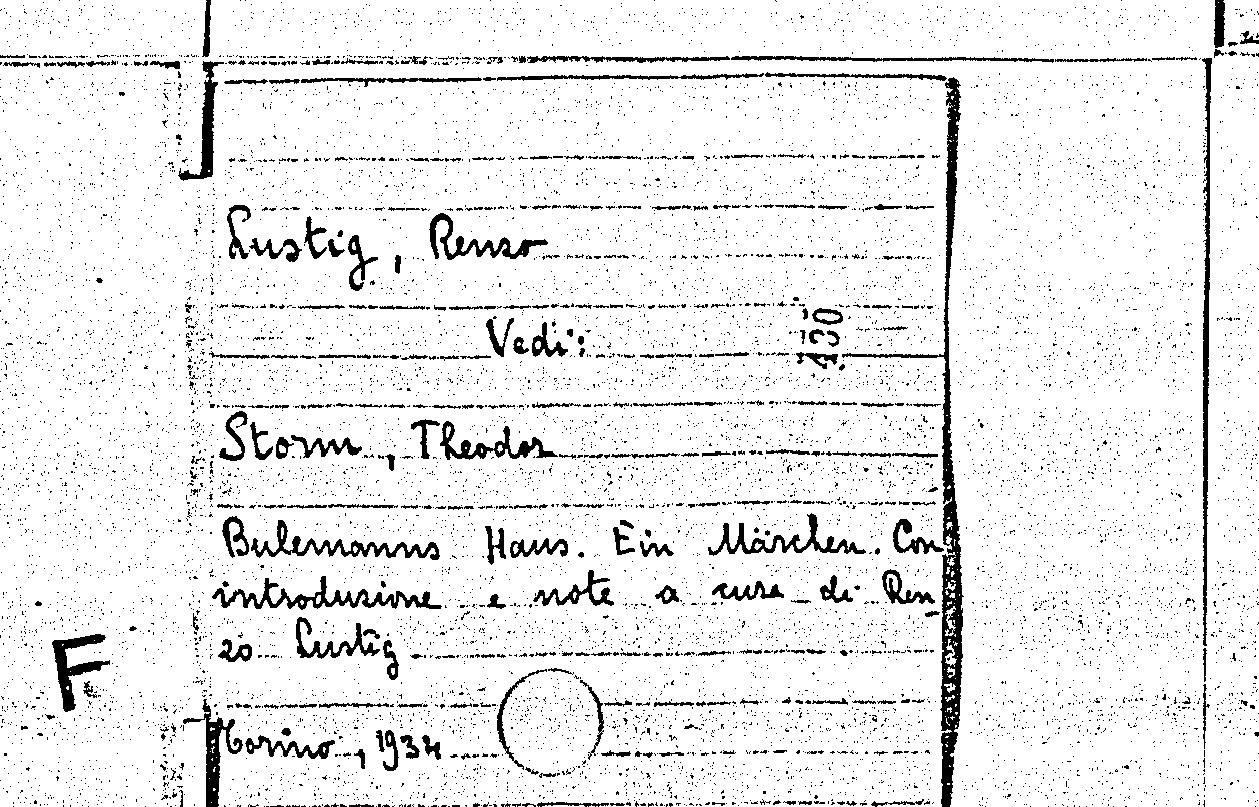 Lustig, Renzo
Vedi:
430
Storm, Theodor
Bulemanns Haus. Ein Märchen. Con
introduzione e note a cura di Ren
zo Lustig
F
Torino, 1934